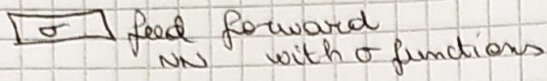 σ feed forward
NN with σ functions